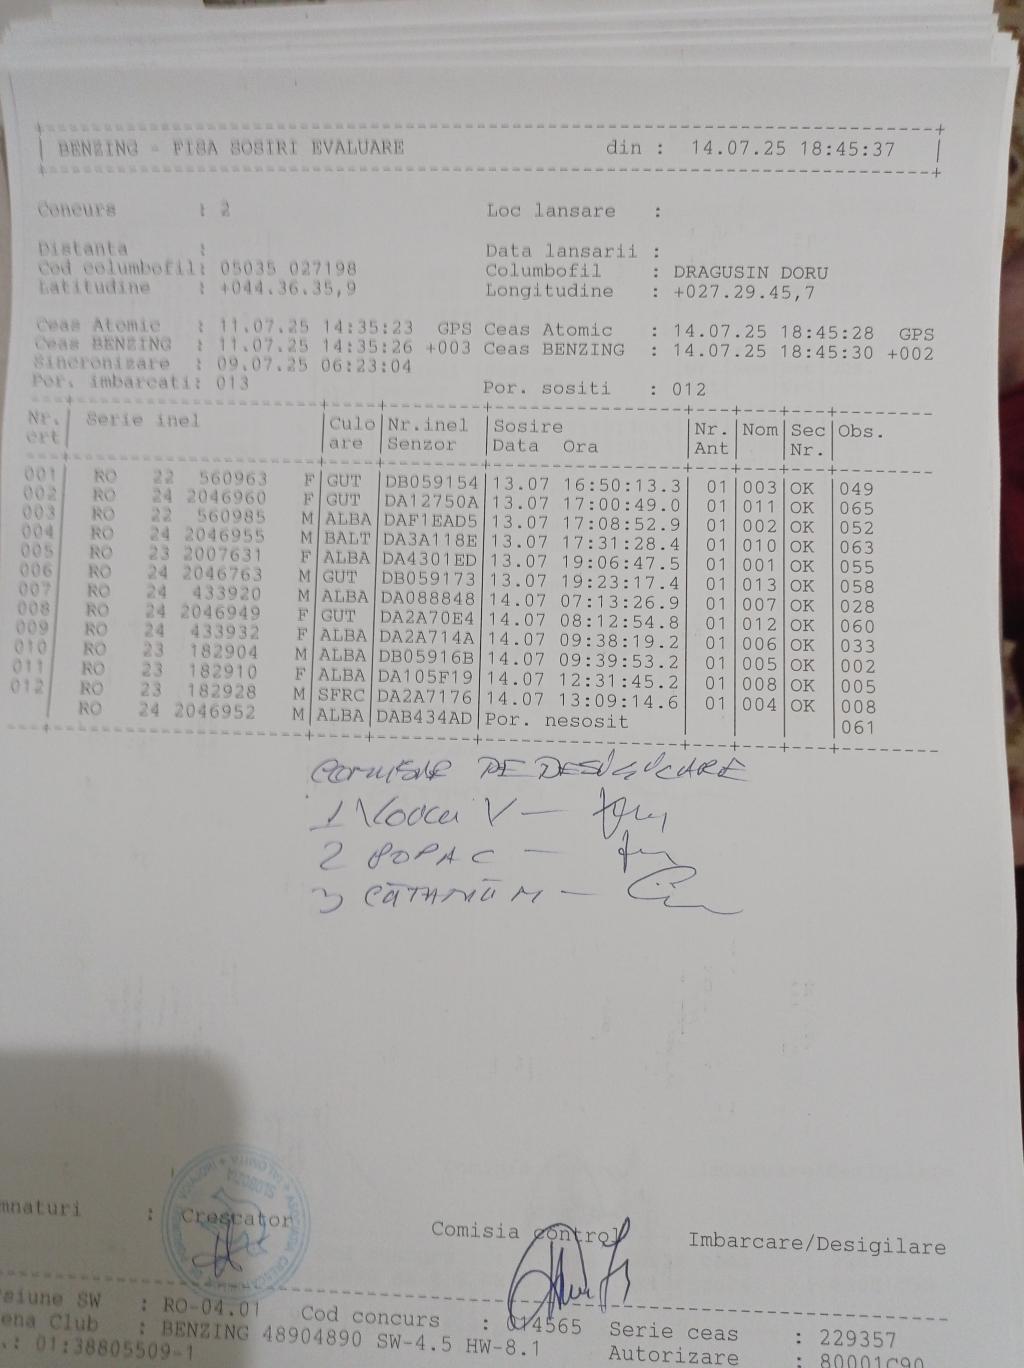 BENZING - FISA SOSIRI EVALUARE din : 14.07.25 18:45:37
Concurs : 2 Loc lansare :
Distanta : Data lansarii :
Cod columbofil: 05035 027198 Columbofil : DRAGUSIN DORU
Latitudine : +044.36.35,9 Longitudine : +027.29.45,7
Ceas Atomic : 11.07.25 14:35:23 GPS Ceas Atomic : 14.07.25 18:45:28 GPS
Ceas BENZING : 11.07.25 14:35:26 +003 Ceas BENZING : 14.07.25 18:45:30 +002
Sincronizare : 09.07.25 06:23:04
Por. imbarcati: 013 Por. sositi : 012
Nr. Serie inel Culo Nr.inel Sosire Nr. Nom Sec Obs.
crt are Senzor Data Ora Ant Nr.
001 RO 22 560963 F GUT DB059154 13.07 16:50:13.3 01 003 OK 049
002 RO 24 2046960 F GUT DA12750A 13.07 17:00:49.0 01 011 OK 065
003 RO 22 560985 M ALBA DAF1EAD5 13.07 17:08:52.9 01 002 OK 052
004 RO 24 2046955 M BALT DA3A118E 13.07 17:31:28.4 01 010 OK 063
005 RO 23 2007631 F ALBA DA4301ED 13.07 19:06:47.5 01 001 OK 055
006 RO 24 2046763 M GUT DB059173 13.07 19:23:17.4 01 013 OK 058
007 RO 24 433920 M ALBA DA088848 14.07 07:13:26.9 01 007 OK 028
008 RO 24 2046949 F GUT DA2A70E4 14.07 08:12:54.8 01 012 OK 060
009 RO 24 433932 F ALBA DA2A714A 14.07 09:38:19.2 01 006 OK 033
010 RO 23 182904 M ALBA DB05916B 14.07 09:39:53.2 01 005 OK 002
011 RO 23 182910 F ALBA DA105F19 14.07 12:31:45.2 01 008 OK 005
012 RO 23 182928 M SFRC DA2A7176 14.07 13:09:14.6 01 004 OK 008
RO 24 2046952 M ALBA DAB434AD Por. nesosit 061
DE
1 V
2 POPA C
3 M
mnaturi : Crescator Comisia control Imbarcare/Desigilare
siune SW : RO-04.01 Cod concurs : 014565 Serie ceas : 229357
ena Club : BENZING 48904890 SW-4.5 HW-8.1 Autorizare : 80001C90
.: 01:38805509-1